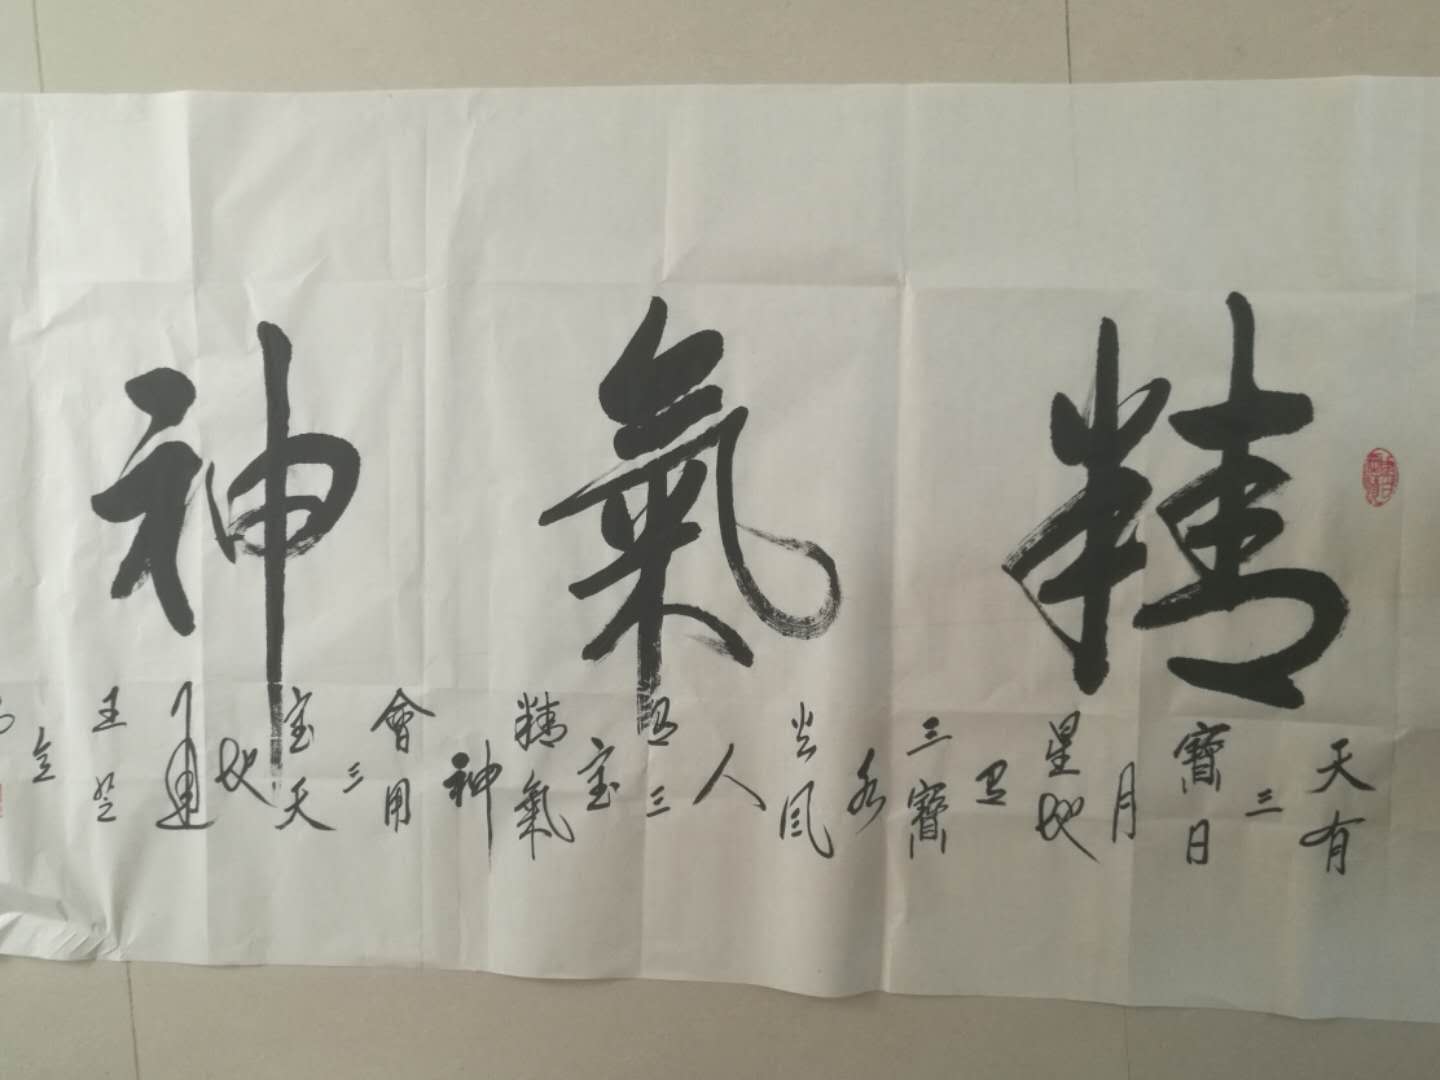 精氣神
天有三寶日月星地有三寶水火風人有三宝精氣神會用三宝天地通